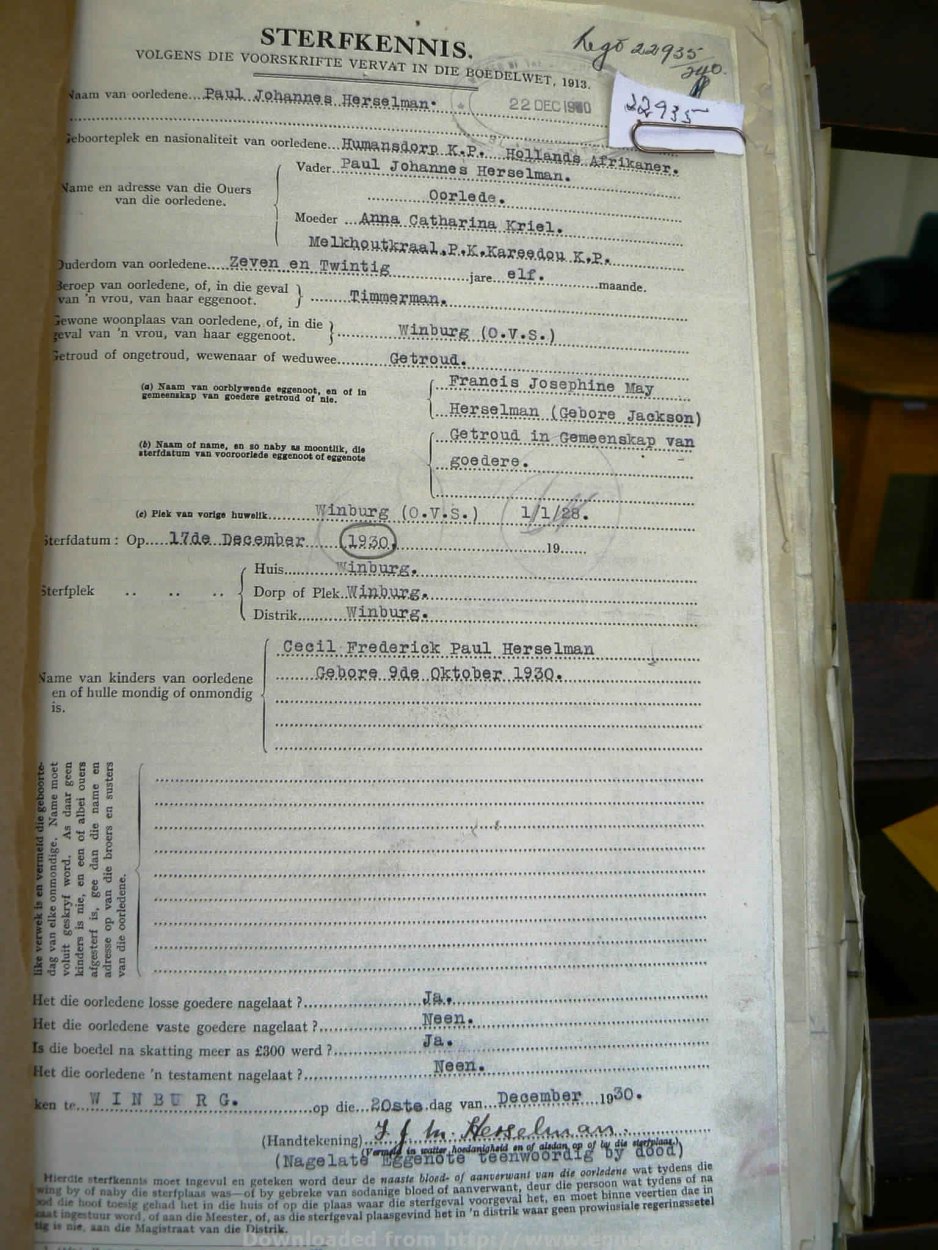 STERFKENNIS.
VOLGENS DIE VOORSKRIFTE VERVAT IN DIE BOEDELWET, 1913.
Legt 22935
240
22935
22 DEC 1930
Naam van oorledene....Paul Johannes Herselman.
Geboorteplek en nasionaliteit van oorledene...Humansdorp K.P. Hollands Afrikaner.
Name en adresse van die Ouers van die oorledene.
Vader..Paul Johannes Herselman.
Oorlede.
Moeder...Anna Catharina Kriel.
Melkhoutkraal.P.K.Kareedou K.P.
Ouderdom van oorledene....Zeven en Twintig jare elf. maande.
Beroep van oorledene, of, in die geval van 'n vrou, van haar eggenoot. Timmerman.
Gewone woonplaas van oorledene, of, in die geval van 'n vrou, van haar eggenoot. Winburg (O.V.S.)
Getroud of ongetroud, wewenaar of weduwee........Getroud.
(a) Naam van oorblywende eggenoot, en of in gemeenskap van goedere getroud of nie.
Francis Josephine May
Herselman (Gebore Jackson)
(b) Naam of name, en so naby as moontlik, die sterfdatum van vooroorlede eggenoot of eggenote
Getroud in Gemeenskap van
goedere.
(c) Plek van vorige huwelik........Winburg (O.V.S.) 1/1/28.
Sterfdatum : Op....17de December (1930) 19......
Sterfplek .. .. ..
Huis........Winburg.
Dorp of Plek..Winburg.
Distrik........Winburg.
Name van kinders van oorledene en of hulle mondig of onmondig is.
Cecil Frederick Paul Herselman
Gebore 9de Oktober 1930.
like verwek is en vermeld die geboorte-
dag van elke onmondige. Name moet
voluit geskryf word. As daar geen
kinders is nie, en een of albei ouers
afgesterf is, gee dan die name en
adresse op van die broers en susters
van die oorledene.
Het die oorledene losse goedere nagelaat ?........Ja.
Het die oorledene vaste goedere nagelaat ?........Neen.
Is die boedel na skatting meer as £300 werd ?........Ja.
Het die oorledene 'n testament nagelaat ?........Neen.
ken te...WINBURG. op die...20ste.dag van...December 1930.
(Handtekening) F J M. Herselman
(Vermeld in watter hoedanigheid en of alsdan op of by die sterfplaas.)
(Nagelate Eggenote teenwoordig by dood)
Hierdie sterfkennis moet ingevul en geteken word deur de naaste bloed- of aanverwant van die oorledene wat tydens die
wing by of naby die sterfplaas was—of by gebreke van sodanige bloed of aanverwant, deur die persoon wat tydens of na
ood die hoof toesig gehad het in die huis of op die plaas waar die sterfgeval voorgeval het, en moet binne veertien dae in
aat ingestuur word, of aan die Meester, of, as die sterfgeval plaasgevind het in 'n distrik waar geen prowinsiale regeringssetel
tig is nie, aan die Magistraat van die Distrik.
Downloaded from http://www.eggsa.org